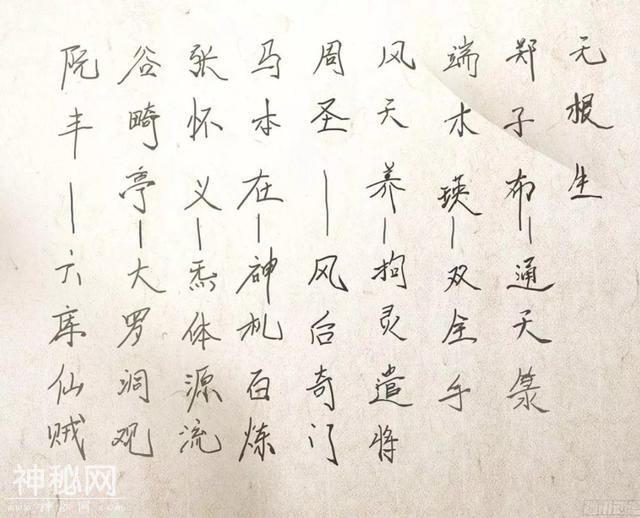 无根生
郑子布—通天箓
端木瑛—双全手
风天养—拘灵遣将
周圣—风后奇门
马本在—神机百炼
张怀义—炁体源流
谷畸亭—大罗洞观
阮丰—六库仙贼
神秘网